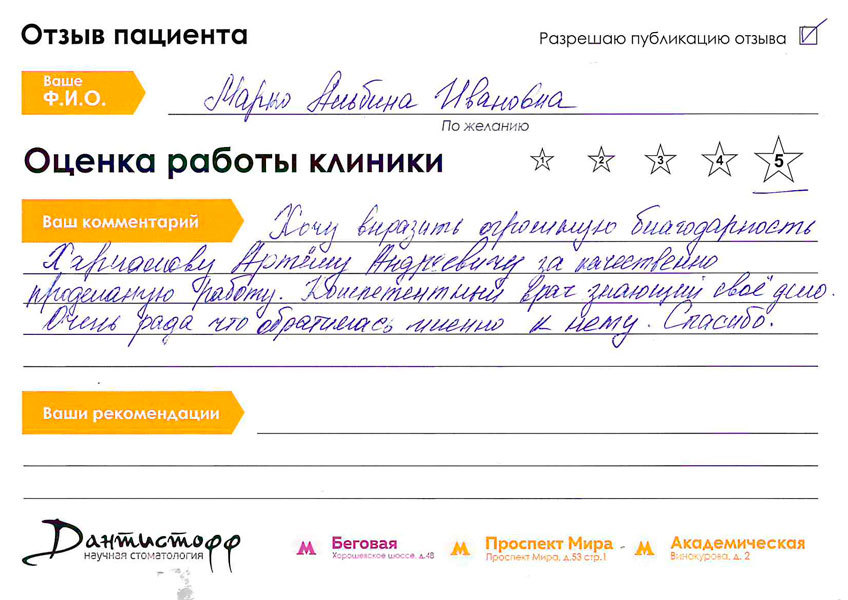 Отзыв пациента
Разрешаю публикацию отзыва
Ваше
Ф.И.О.
Марко Альбина Ивановна
По желанию
Оценка работы клиники
1 2 3 4 5
Ваш комментарий
Хочу выразить огромную благодарность
Харламову Артёму Андреевичу за качественно
проделаную работу. Компетентный врач знающий своё дело.
Очень рада что обратилась именно к нему. Спасибо.
Ваши рекомендации
Дантистофф
научная стоматология
Беговая
Хорошевское шоссе, д.48
Проспект Мира
Проспект Мира, д.53 стр.1
Академическая
Винокурова, д. 2